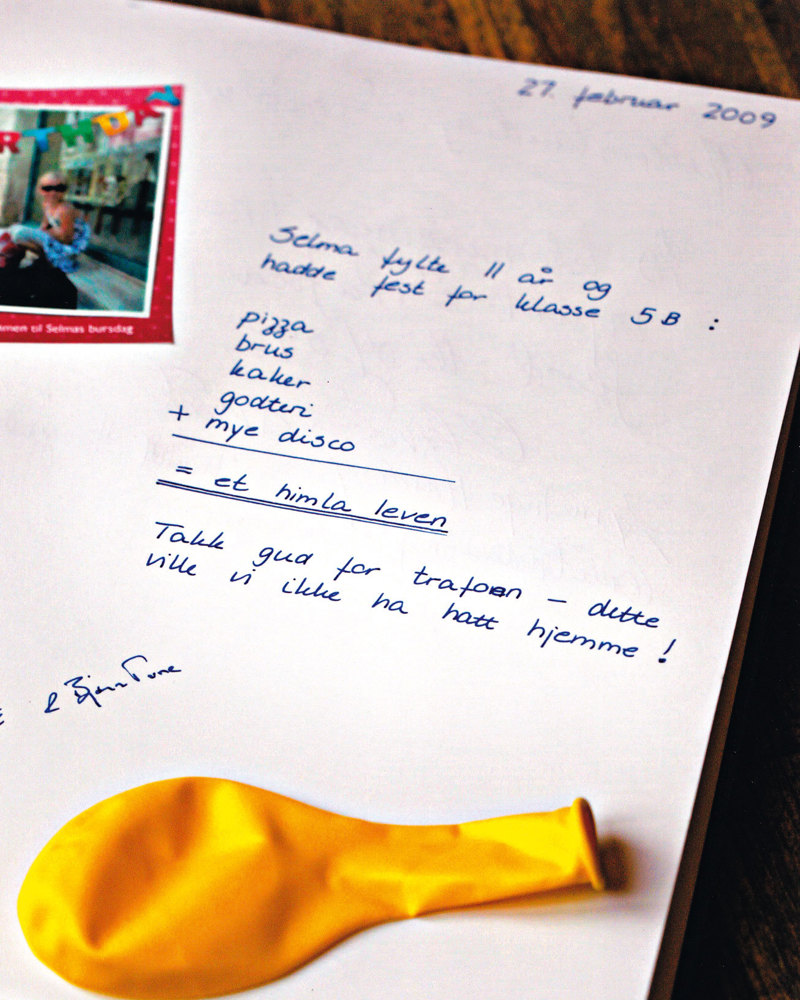 27. februar 2009
RTHDA
Selma fylte 11 år og
hadde fest for klasse 5B :
men til Selmas bursdag
pizza
brus
kaker
godteri
+ mye disco
= et himla leven
Takk gud for trafoen – dette
ville vi ikke ha hatt hjemme !
& Bjørn Tore